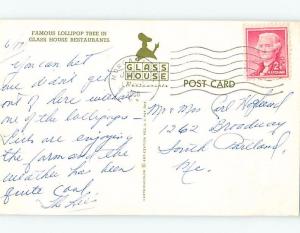 FAMOUS LOLLIPOP TREE IN
GLASS HOUSE RESTAURANTS.
6/17
You can bet
we didn't get
out of here without
one of the lollipops –
Kids are enjoying
the farm and the
weather has been
quite cool.
GLASS
HOUSE
Restaurants
POST CARD
2¢
Mr & Mrs Carl
1262 Broadway
South Portland,
Me.